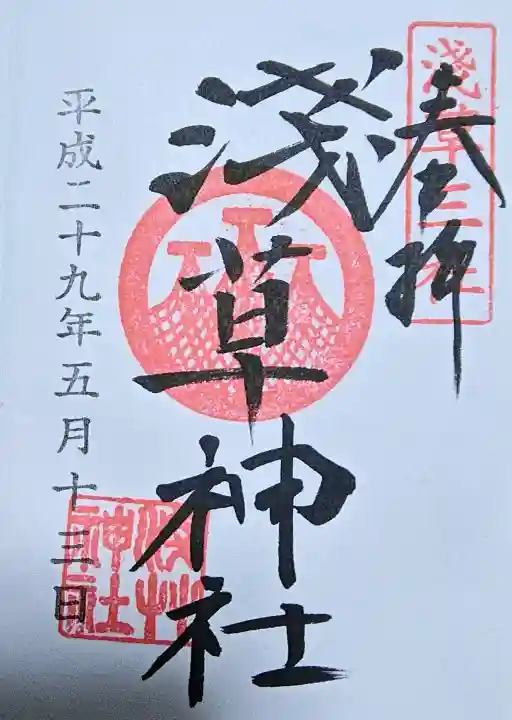 奏拝
淺草三社
淺草神社
淺草神社
平成二十九年五月十三日